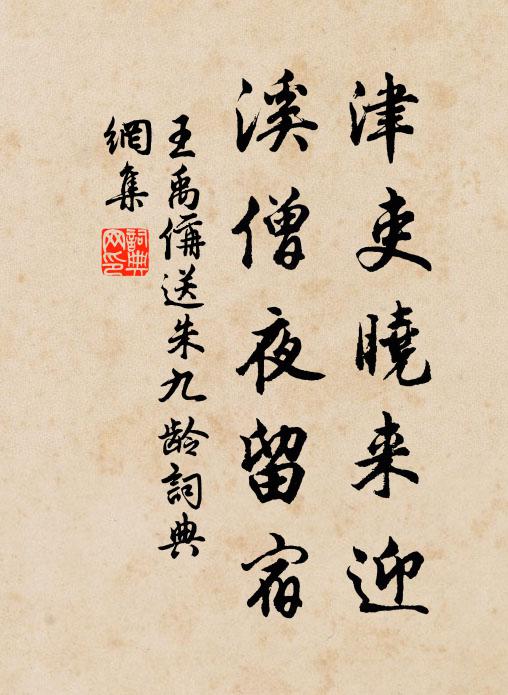 津吏曉来迎
溪僧夜留宿
王禹偁送朱九龄詞典
網集
詞典网印